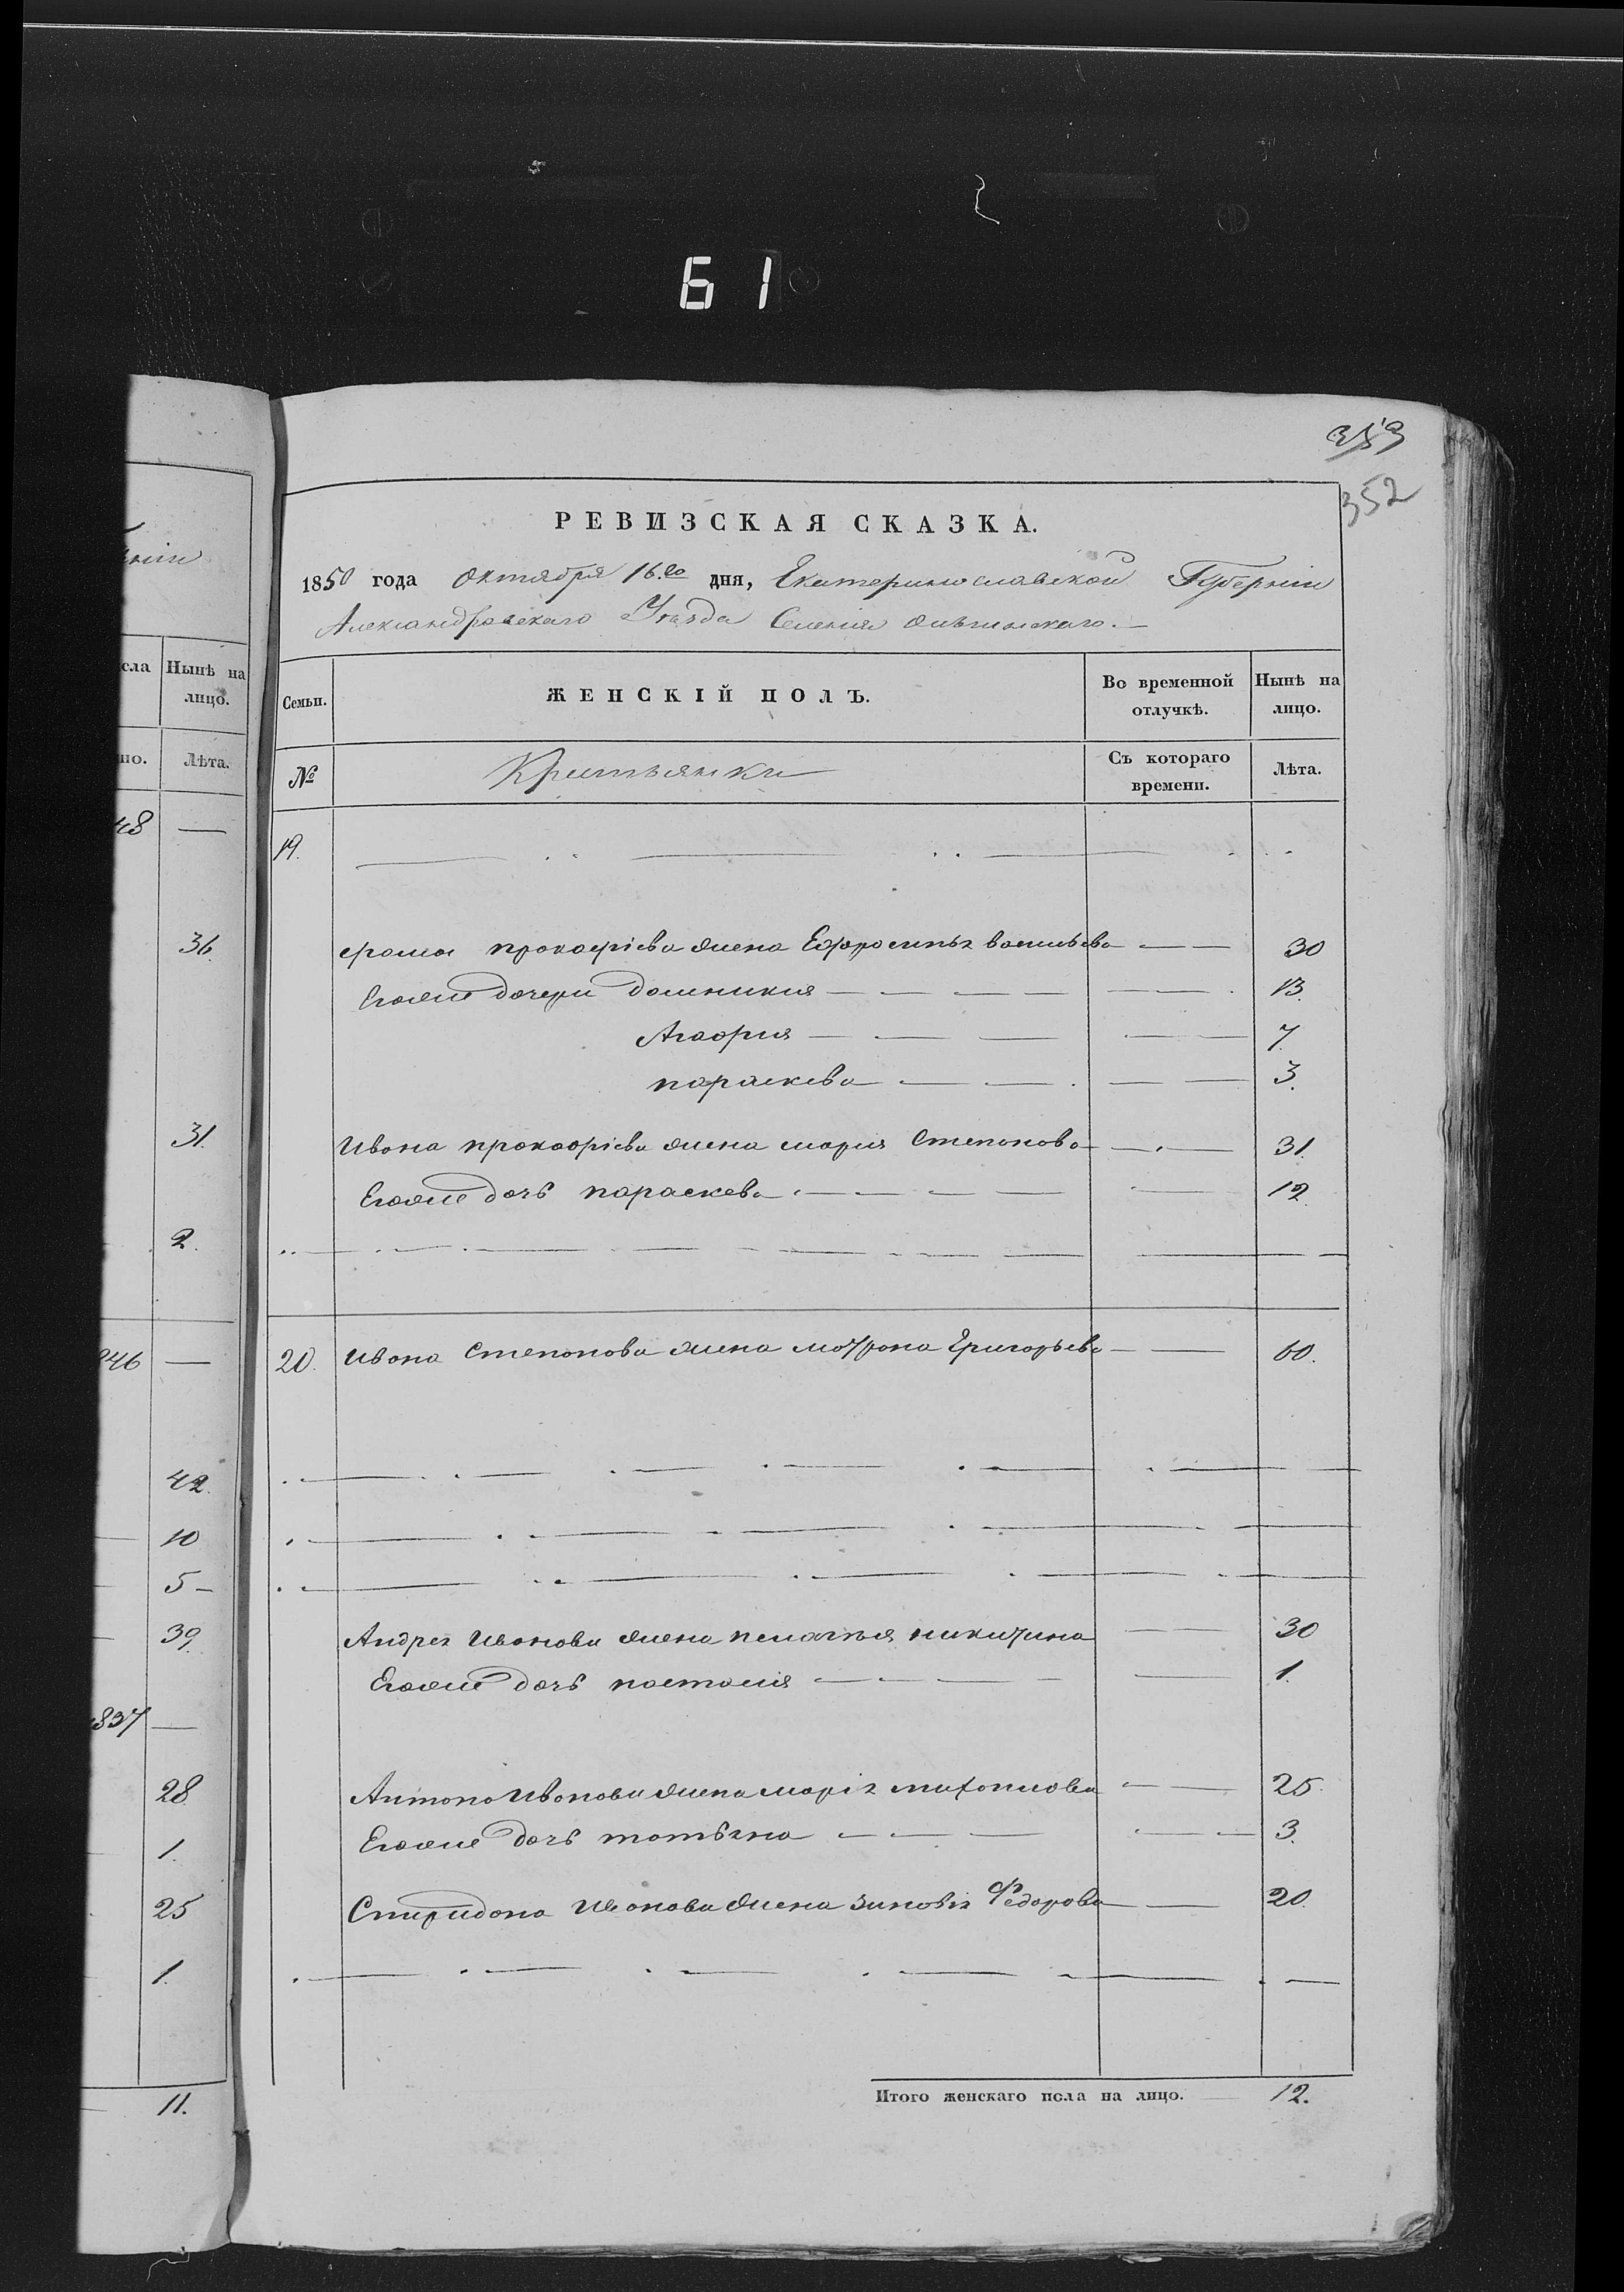 61
353
352
РЕВИЗСКАЯ СКАЗКА.
1850 года Октября 16.го дня, Екатеринославской Губерніи
Александровскаго Уѣзда Селенія
сла Нынѣ на лицо.
но. Лѣта.
48 —
36.
31.
2.
846 —
42.
10
5 –
39.
837 —
28.
1.
25
1.
11.
Семьи. ЖЕНСКІЙ ПОЛЪ. Во временной отлучкѣ. Нынѣ на лицо.
№ Кристьянки Съ котораго времени. Лѣта.
19.
Фомы прокофіева жена Ефросинья васильева — — 30
Егоже дочери домникия — — — — 13.
Агафия — — — — 7.
параскева — — — — 3.
Ивана прокофіева жена мария Степанова — — 31.
Егоже дочь параскева — — — — 12.
20. Ивана Степанова жена матрона Григорьева — — 60.
Андрея Иванова жена пелагья никитина — — 30
Егоже дочь настасия — — — 1.
Антона Иванова жена марія — — 25.
Егоже дочь татьяна — — — — 3.
Спиридона Иванова жена зиновія Федорова — — 20.
Итого женскаго пола на лицо. — 12.